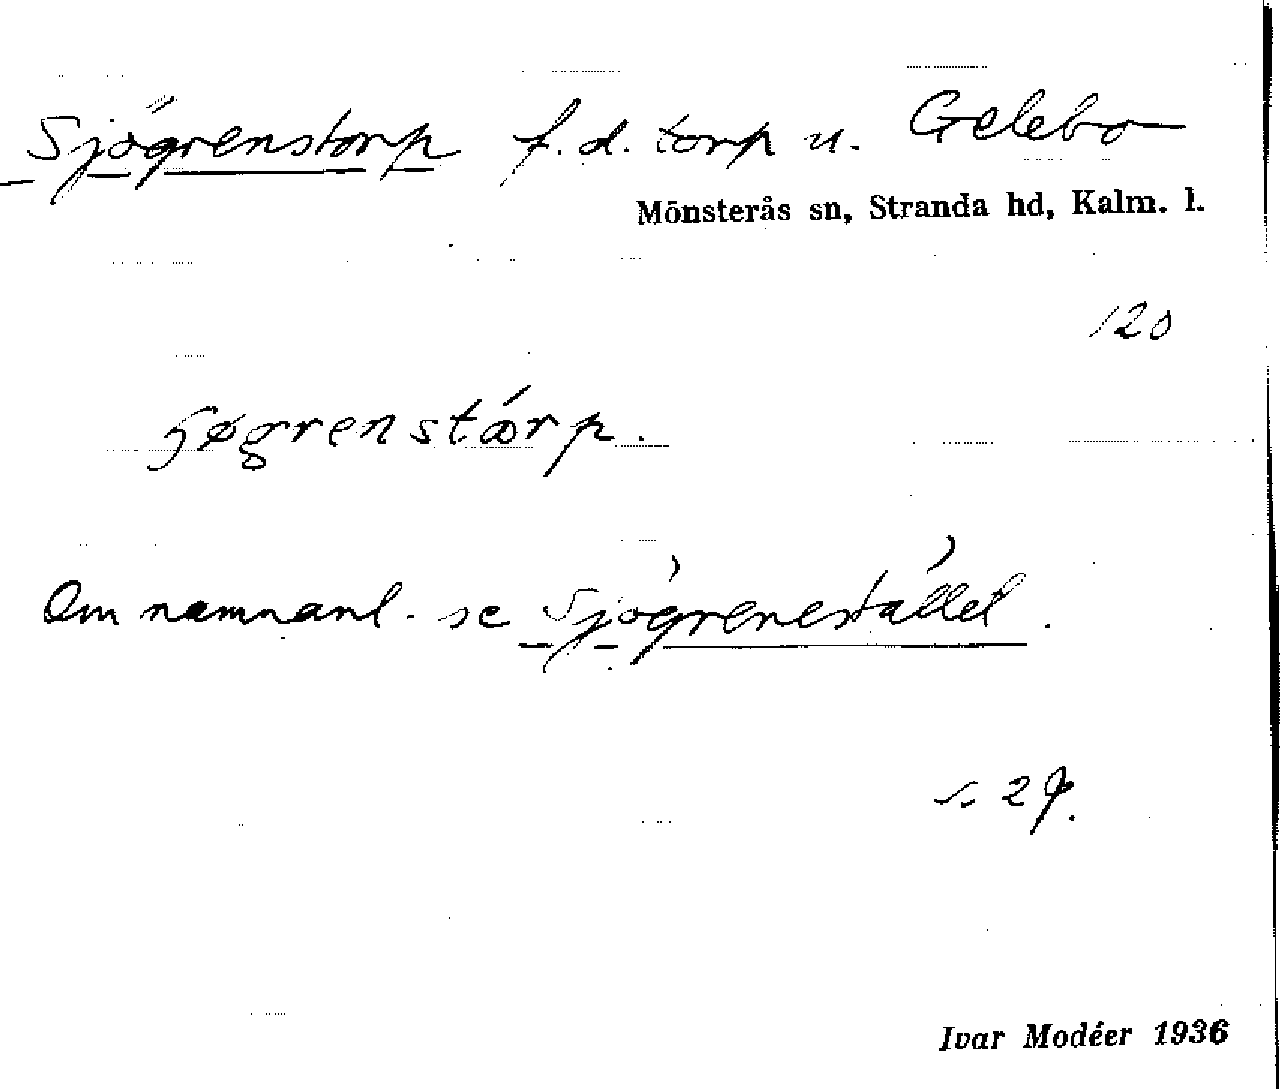 Sjögrenstorp f.d. torp u. Gelebo
Mönsterås sn, Stranda hd, Kalm. l.
120
Om namnanl. se Sjögrenestället.
s. 29.
Ivar Modéer 1936